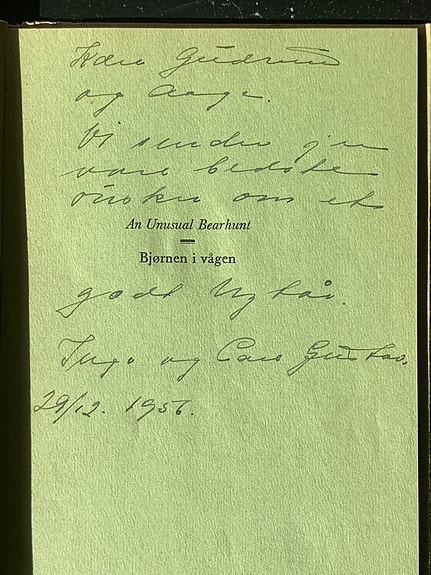 Kære Gudrun
og Aage.
Vi sender jer
vore bedste
önsker om et
An Unusual Bearhunt
Bjørnen i vågen
godt Nytår.
Inga og Carl Gustav.
29/12. 1956.